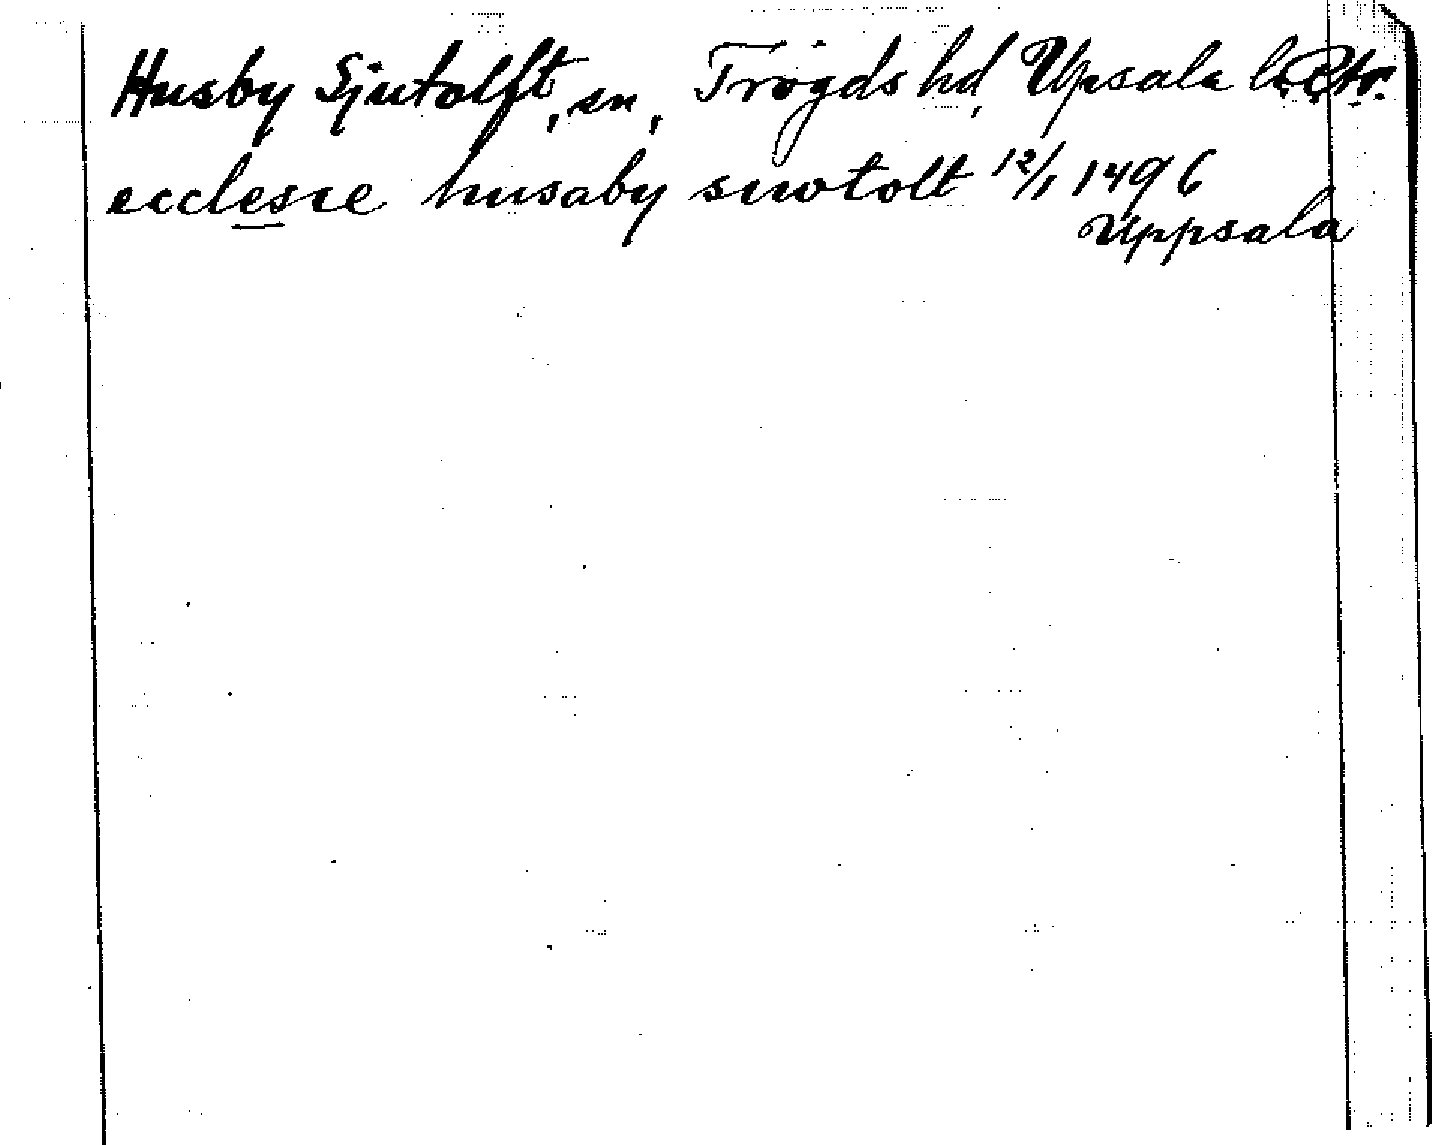 Husby Sjutolft, sn, Trögds hd, Upsala l.
ecclesie husaby siwtolt 12/1 1496
Uppsala